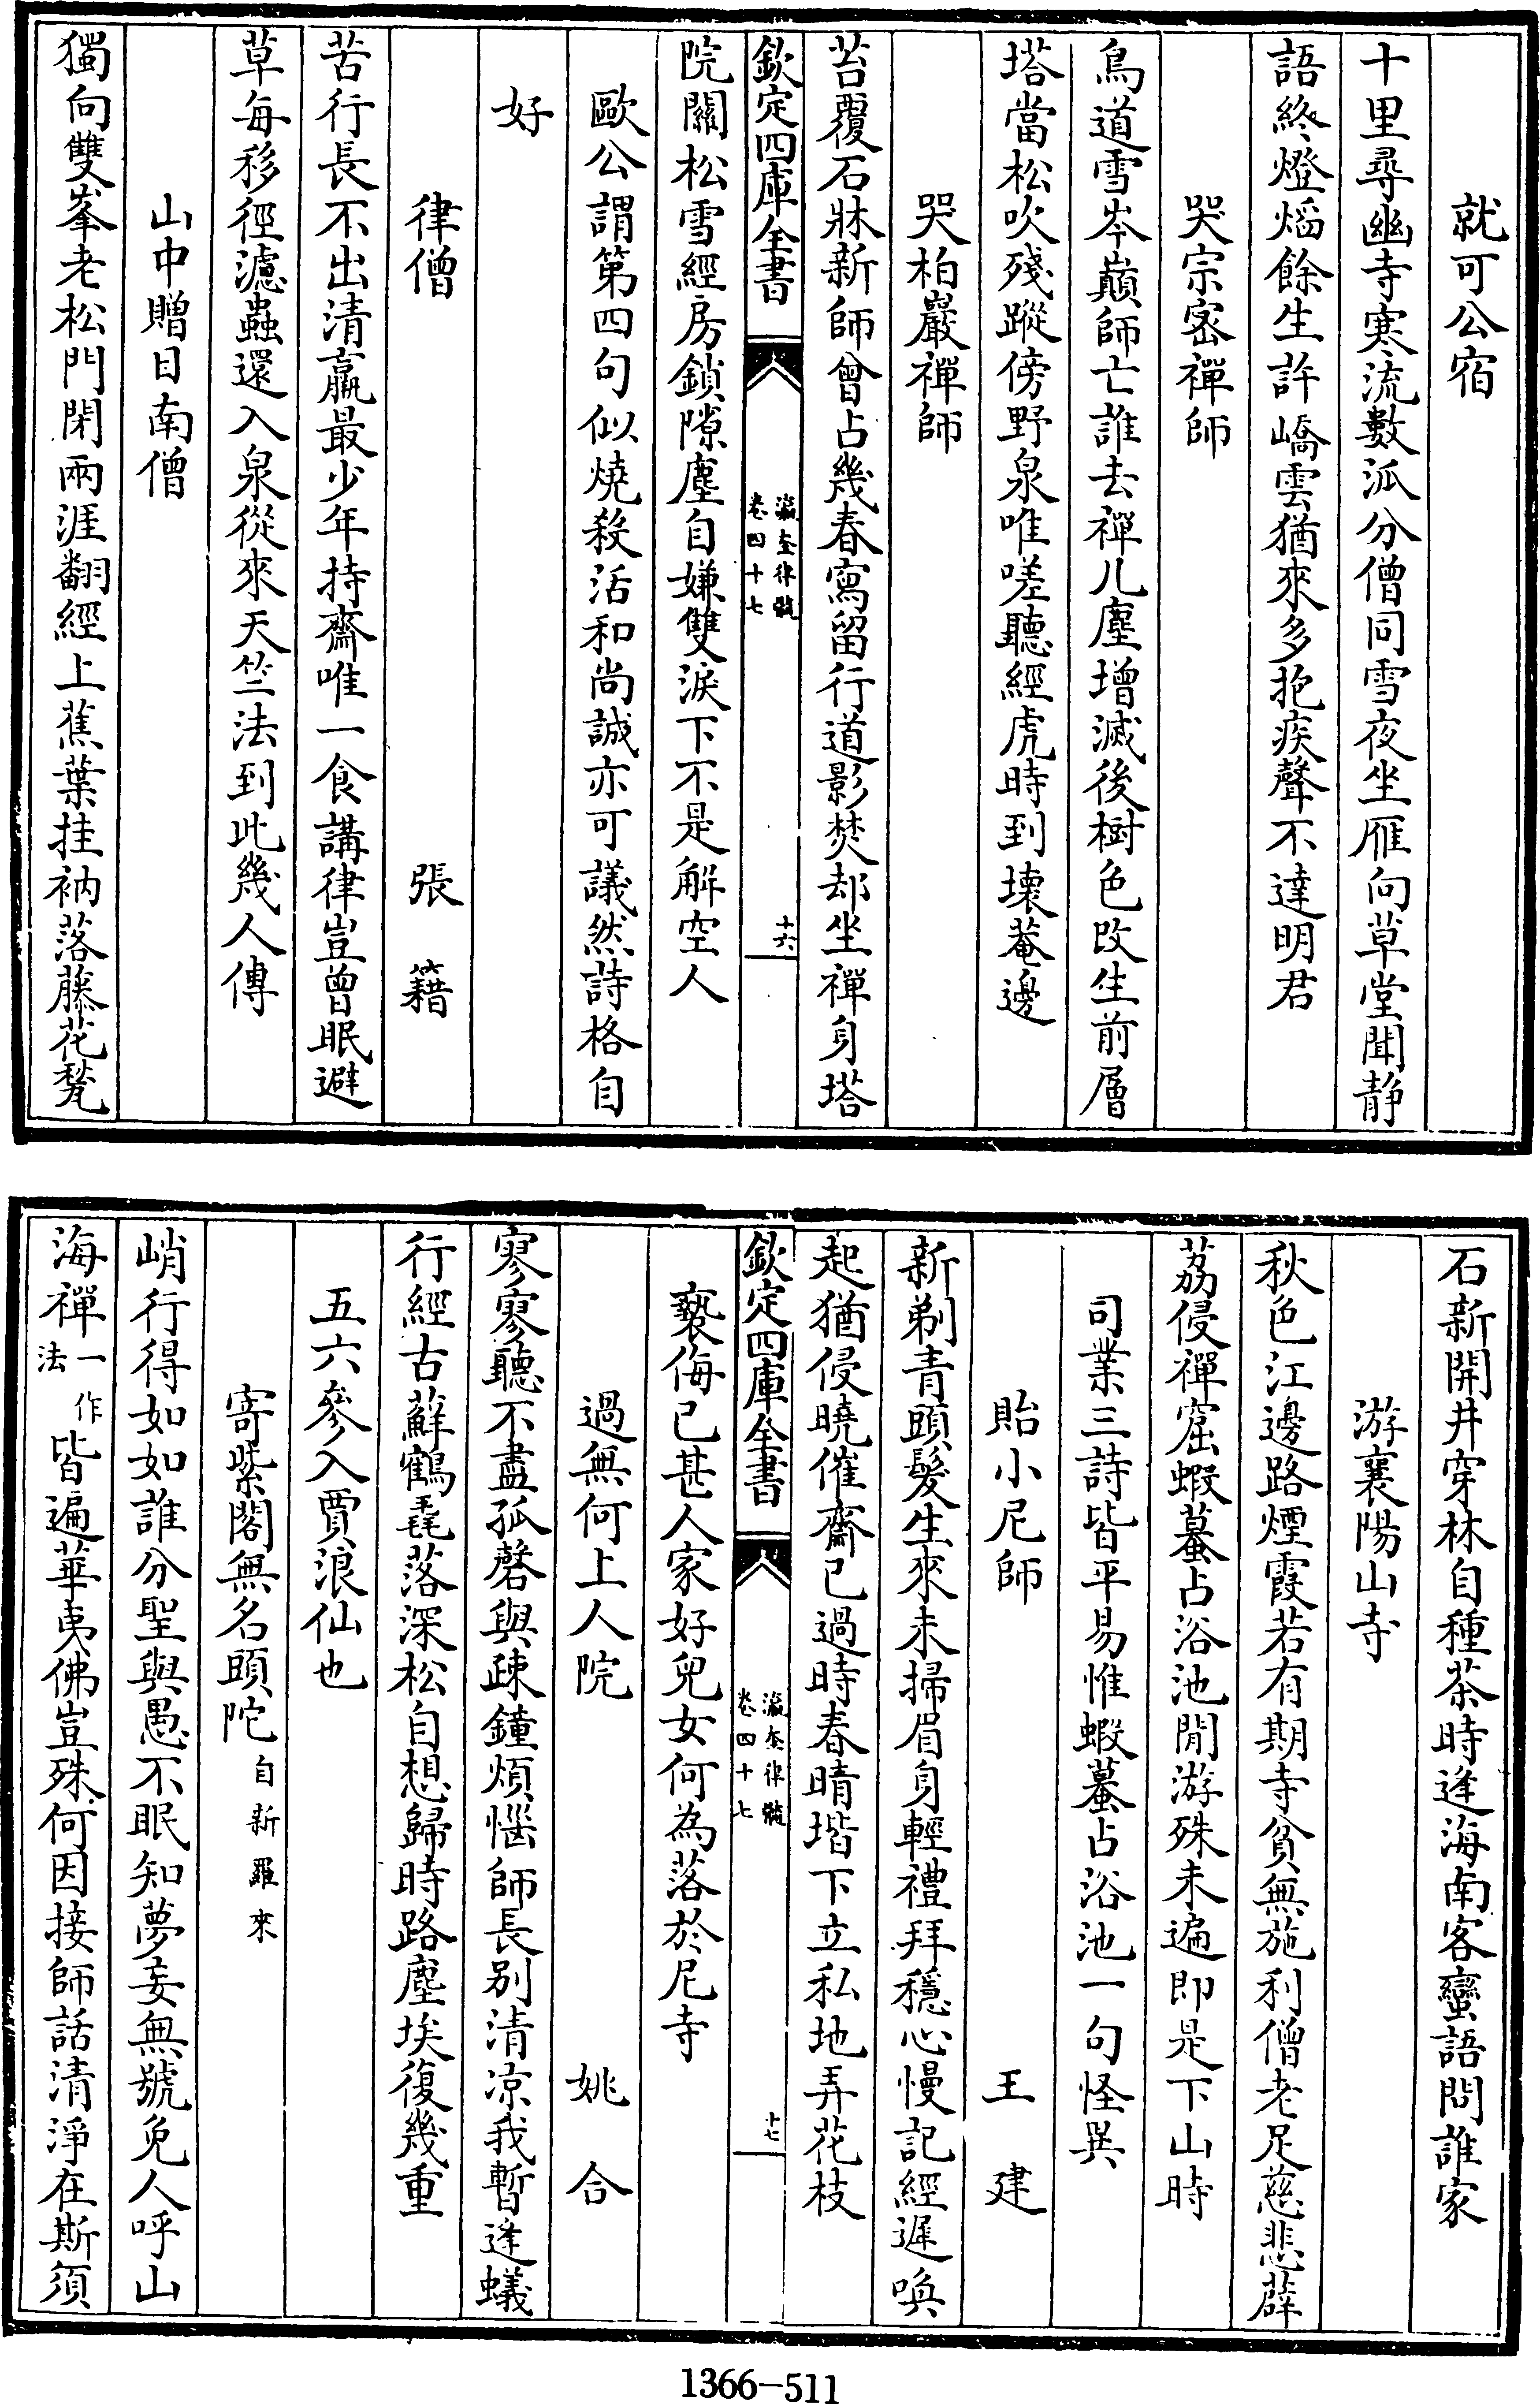 就可公宿
十里尋幽寺寒流數泒分僧同雪夜坐雁向草堂聞静
語終燈熖餘生許嶠雲猶來多抱疾聲不達明君
哭宗宻禪師
鳥道雪岑巔師亡誰去禪几塵增滅後樹色改生前層
塔當松吹殘蹤傍野泉唯嗟聽經虎時到壊菴邊
哭柏巖禪師
苔覆石牀新師曾占幾春寫留行道影焚却坐禪身塔
欽定四庫全書
瀛奎律髓
卷四十七
十六
院關松雪經房鎖隙塵自嫌雙淚下不是解空人
歐公謂第四句似燒殺活和尚誠亦可議然詩格自
好
律僧 張籍
苦行長不出清羸最少年持齋唯一食講律豈曾眠避
草每移徑濾蟲還入泉從來天竺法到此幾人傳
山中贈日南僧
獨向雙峯老松門閉兩涯翻經上蕉葉挂衲落藤花甃
石新開井穿林自種茶時逢海南客蠻語問誰家
游襄陽山寺
秋色江邊路煙霞若有期寺貧無施利僧老足慈悲薜
荔侵禪窟蝦蟇占浴池閒游殊未遍即是下山時
司業三詩皆平易惟蝦蟇占浴池一句怪異
貽小尼師 王建
新剃青頭髮生來未掃眉身輕禮拜穩心慢記經遲喚
起猶侵曉催齋已過時春晴堦下立私地弄花枝
欽定四庫全書
瀛奎律髓
卷四十七
十七
褻侮已甚人家好兒女何為落於尼寺
過無何上人院 姚合
寥寥聽不盡孤磬與疎鐘煩惱師長别清凉我暫逢蟻
行經古蘚鶴毳落深松自想歸時路塵埃復幾重
五六參入賈浪仙也
寄紫閣無名頭陀自新羅來
峭行得如如誰分聖與愚不眠知夢妄無號免人呼山
海禪一作法皆遍華夷佛豈殊何因接師話清淨在斯須
1366-511